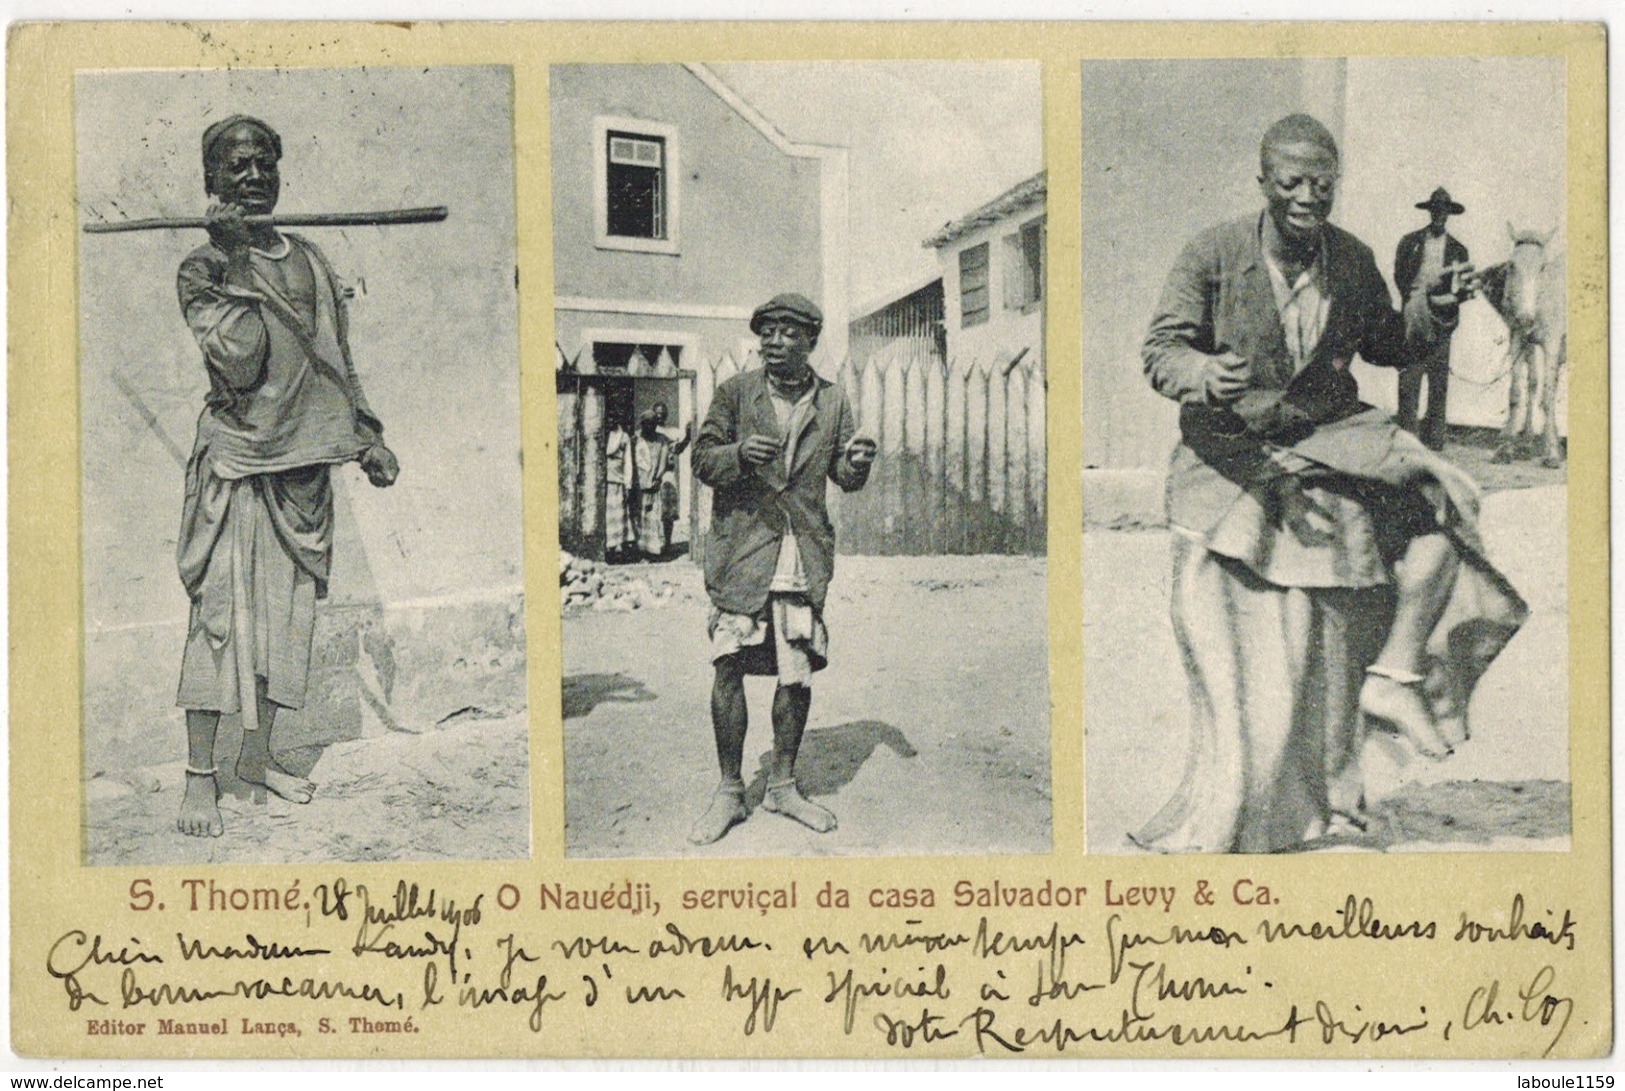 S. Thomé, 28 Juillet 1906 O Nauédji, serviçal da casa Salvador Levy & Ca.
Chère Madame Landy, je vous adresse en même temps que mes meilleurs souhaits
de bonnes vacances, l'image d'un type spécial à San Thomé.
Editor Manuel Lança, S. Thomé.
Votre Respectueusement dévoué, Ch.
www.delcampe.net
laboule1159